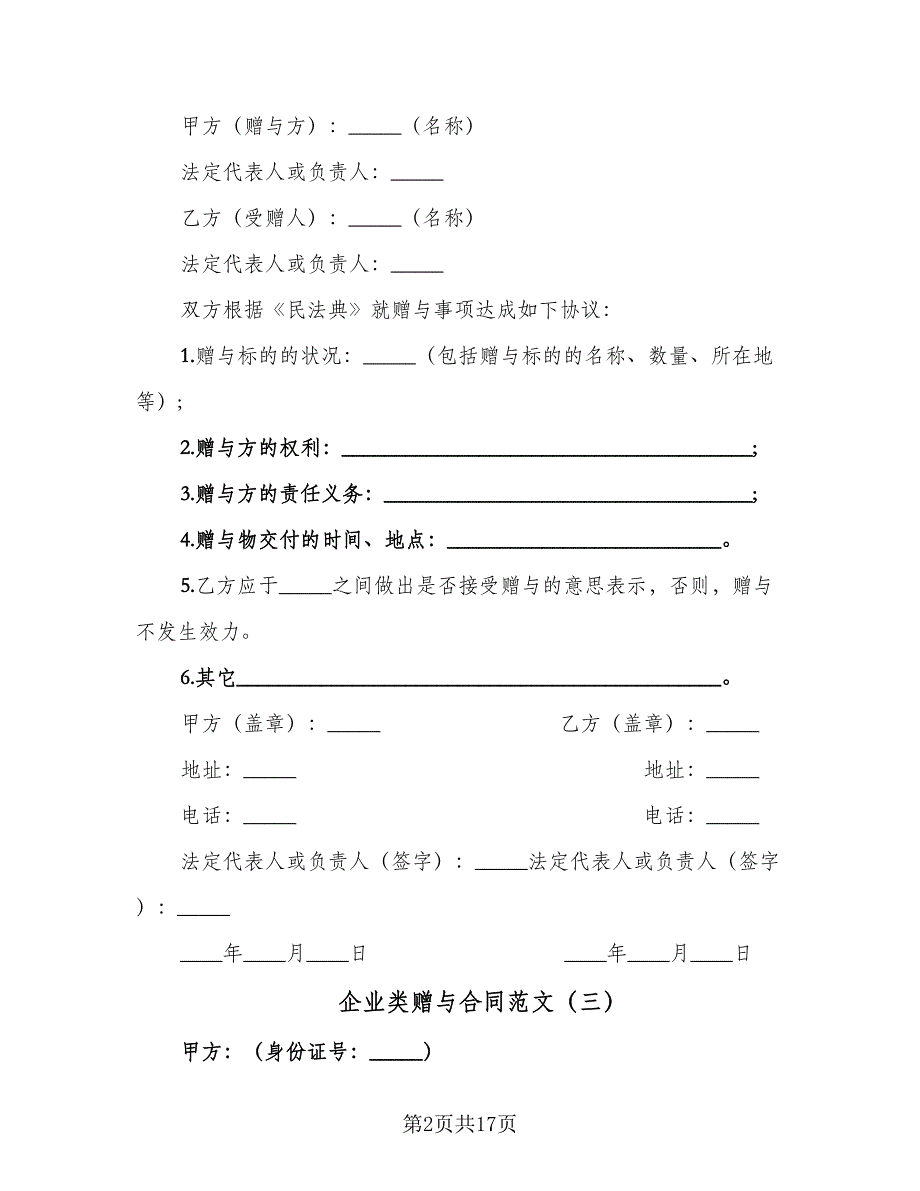 甲方（赠与方）：_____（名称）
法定代表人或负责人：_____
乙方（受赠人）：_____（名称）
法定代表人或负责人：_____
双方根据《民法典》就赠与事项达成如下协议：
1.赠与标的的状况：_____（包括赠与标的的名称、数量、所在地
等）;
2.赠与方的权利：_______________________________________;
3.赠与方的责任义务：___________________________________;
4.赠与物交付的时间、地点：__________________________。
5.乙方应于_____之间做出是否接受赠与的意思表示，否则，赠与
不发生效力。
6.其它______________________________________________。
甲方（盖章）：_____ 乙方（盖章）：_____
地址：_____ 地址：_____
电话：_____ 电话：_____
法定代表人或负责人（签字）：_____法定代表人或负责人（签字
）：_____
____年____月____日 ____年____月____日
企业类赠与合同范文（三）
甲方：（身份证号：_____）
第2页共17页